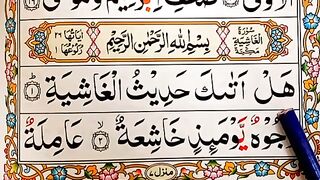 صُحُفِ اِبْرٰهِيْمَ وَمُوْسٰى ۝١٩
سُوْرَةُ الْغَاشِيَةِ مَكِّيَّةٌ بِسْمِ اللهِ الرَّحْمٰنِ الرَّحِيْمِ اٰيَاتُهَا ٢٦ رُكُوْعُهَا ١
هَلْ اَتٰىكَ حَدِيْثُ الْغَاشِيَةِ ۝١
وُجُوْهٌ يَّوْمَئِذٍ خَاشِعَةٌ ۝٢ عَامِلَةٌ
منزل ٧